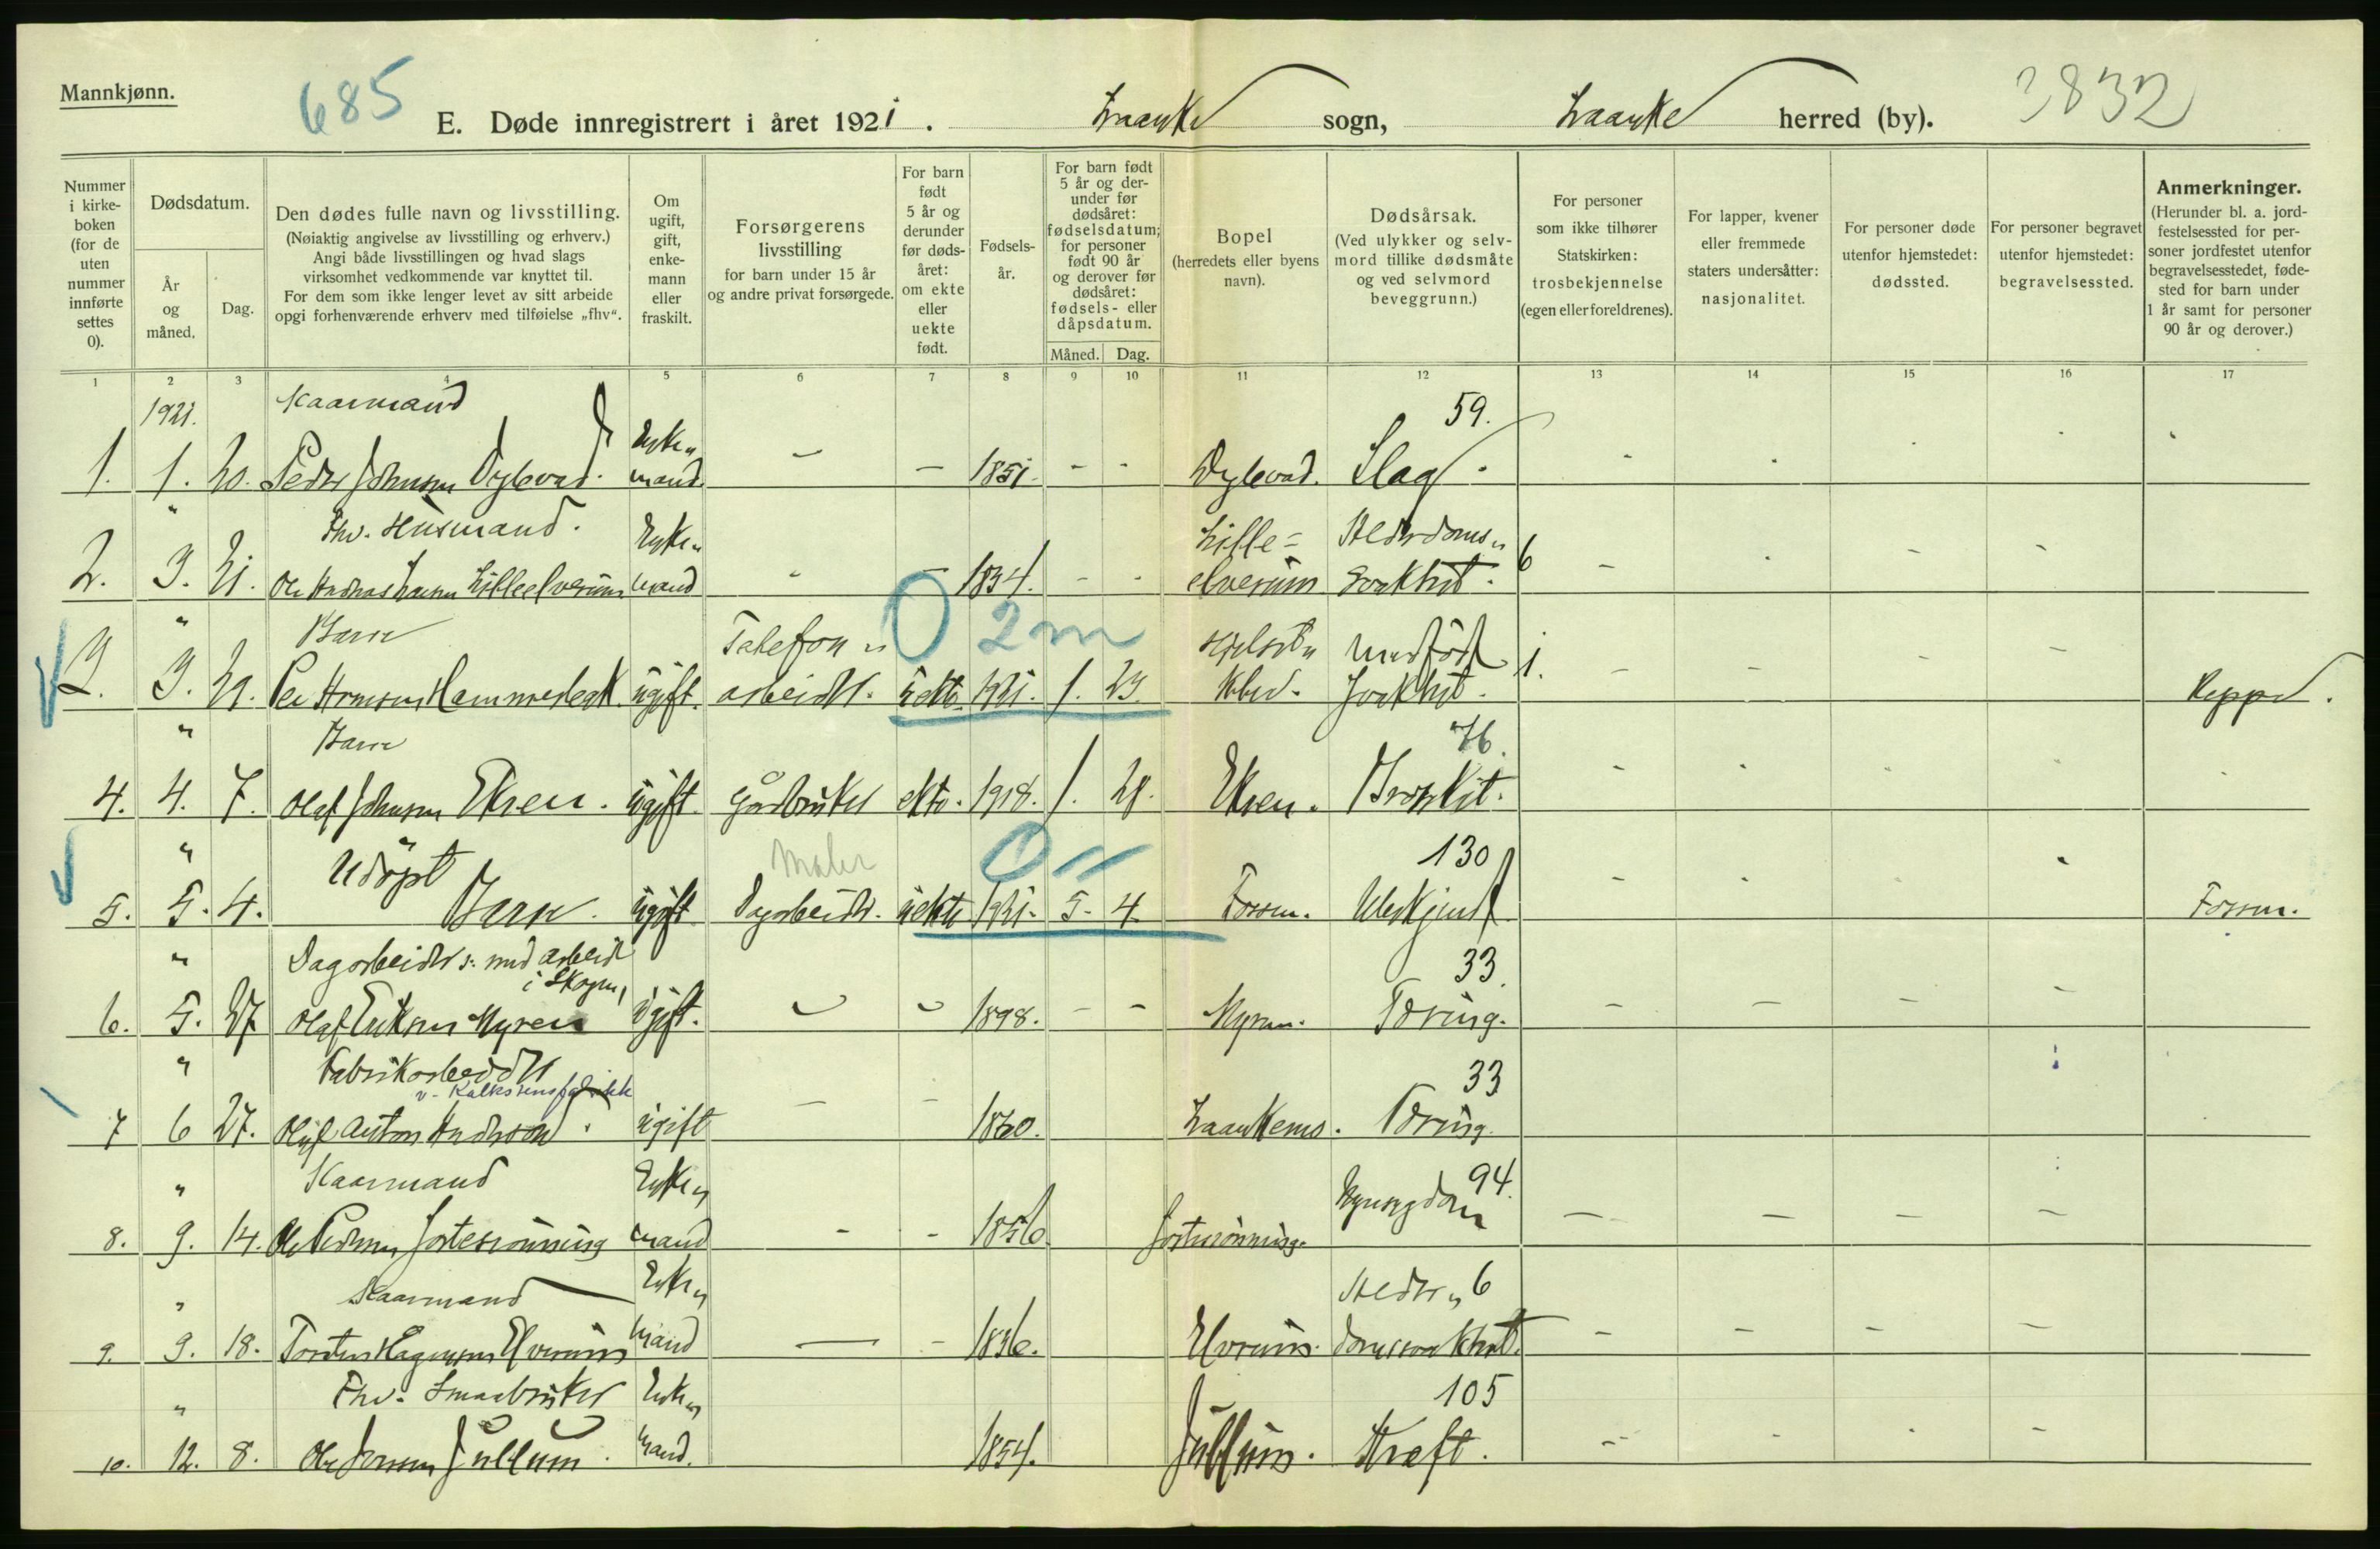 Mannkjønn.
685
E. Døde innregistrert i året 1921. Laanke sogn, Laanke herred (by).
3832
Nummer i kirkeboken (for de uten nummer innførte settes 0).
Dødsdatum.
År og måned.
Dag.
Den dødes fulle navn og livsstilling.
(Nøiaktig angivelse av livsstilling og erhverv.)
Angi både livsstillingen og hvad slags
virksomhet vedkommende var knyttet til.
For dem som ikke lenger levet av sitt arbeide
opgi forhenværende erhverv med tilføielse „fhv“.
Om ugift, gift, enkemann eller fraskilt.
Forsørgerens livsstilling
for barn under 15 år
og andre privat forsørgede.
For barn født 5 år og derunder før dødsåret: om ekte eller uekte født.
Fødselsår.
For barn født 5 år og derunder før dødsåret: fødselsdatum; for personer født 90 år og derover før dødsåret: fødsels- eller dåpsdatum.
Måned. Dag.
Bopel
(herredets eller byens navn).
Dødsårsak.
(Ved ulykker og selvmord tillike dødsmåte og ved selvmord beveggrunn.)
For personer som ikke tilhører Statskirken: trosbekjennelse (egen eller foreldrenes).
For lapper, kvener eller fremmede staters undersåtter: nasjonalitet.
For personer døde utenfor hjemstedet: dødssted.
For personer begravet utenfor hjemstedet: begravelsessted.
Anmerkninger.
(Herunder bl. a. jordfestelsessted for personer jordfestet utenfor begravelsesstedet, fødested for barn under 1 år samt for personer 90 år og derover.)
1 2 3 4 5 6 7 8 9 10 11 12 13 14 15 16 17
1921. Kaarmand 59.
1. 1. 20. Peder Johnsen Dyblvad. Enkemand. — — 1851. - - Dyblvad. Slag.
" Fhv. Husmand. Enke" Lille= Alderdoms"
2. 3. 21. Ole Andreas Lillelverum mand - — 1834. - - elverum svakhet. 6
" Barn Telefon" O 2m medfødt
3. 3. 29. Per Hammerbak ugift. arbeider. uekte. 1921. 1. 23. svakhet. 1.
" Barn 76.
4. 4. 7. Olaf Johnsen Ekren. ugift. Gårdbruker ekte. 1918. 1. 28. Ekren.
" Udøpt Maler O 11 130
5. 5. 4. Barn. ugift Dagarbeider. uekte 1921. 5. 4. Forren. Forren.
" Dagarbeider s. med arbeid i Skogen, 33.
6. 5. 27. Olaf Eriksen Myren ugift. 1898. - - Myren. Tæring.
" Fabrikarbeider v. Kalkstensfabrikk 33
7 6 27. Oluf Anton Andersen. ugift — - 1860. Laankemo. Tæring.
" Kaarmand Enke" 94.
8. 9. 14. Ole Pedersen Jortesrønning mand - - 1856 Jortesrønning.
" Kaarmand Enke" Alder" 6
9. 9. 18. Torsten Haagensen Elverum mand — - 1836. Elverum. domssvakhet.
" Fhv. Smaabruker Enke" 105
10. 12. 8. Ole Jensen Jullum. mand. 1854. Jullum. Kræft.